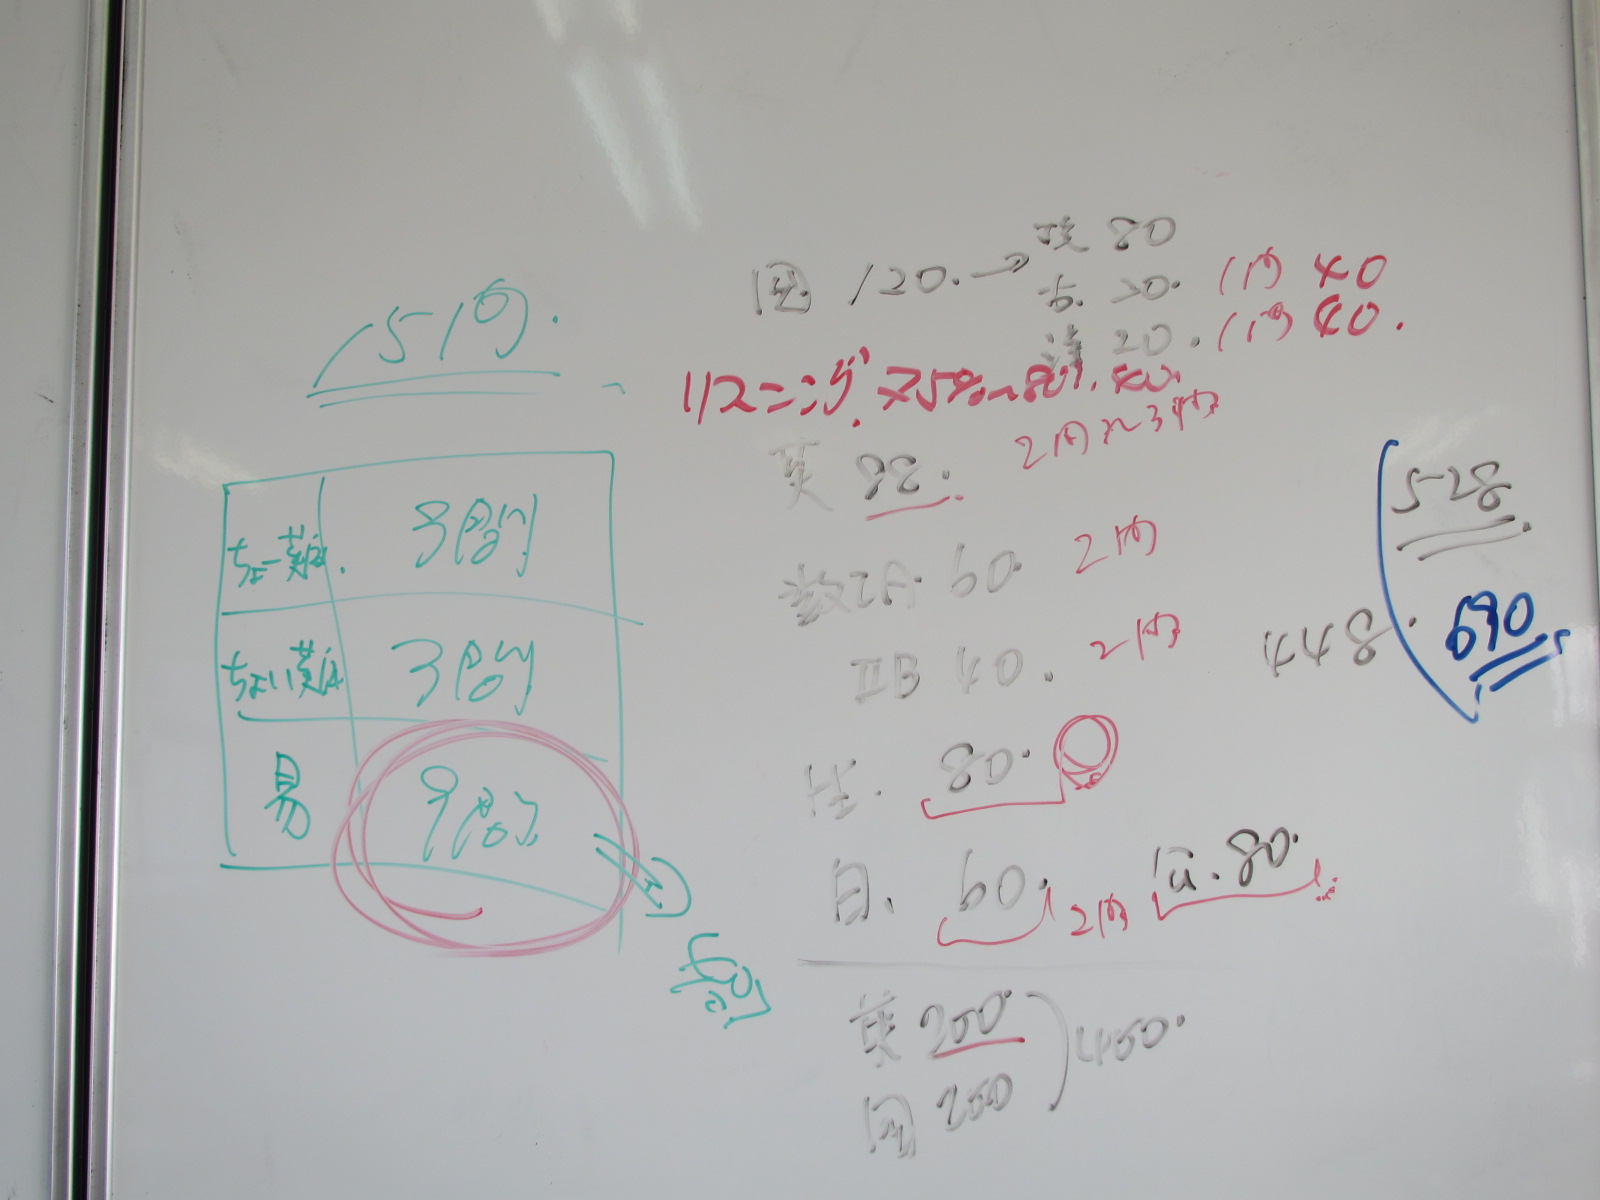 15問.
ちょー難. 3問
ちょい難 3問
易 9問
国 120. → 現 80
古. 20. 1問 40
漢 20. 1問 40.
リスニング. 75%~80%. 40.
英 88. 2問~3問
数IA. 60. 2問
ⅡB 40. 2問
448.
528
690
社. 80.
日. 60. 2問 伝. 80.
英 200.
国 250
450.